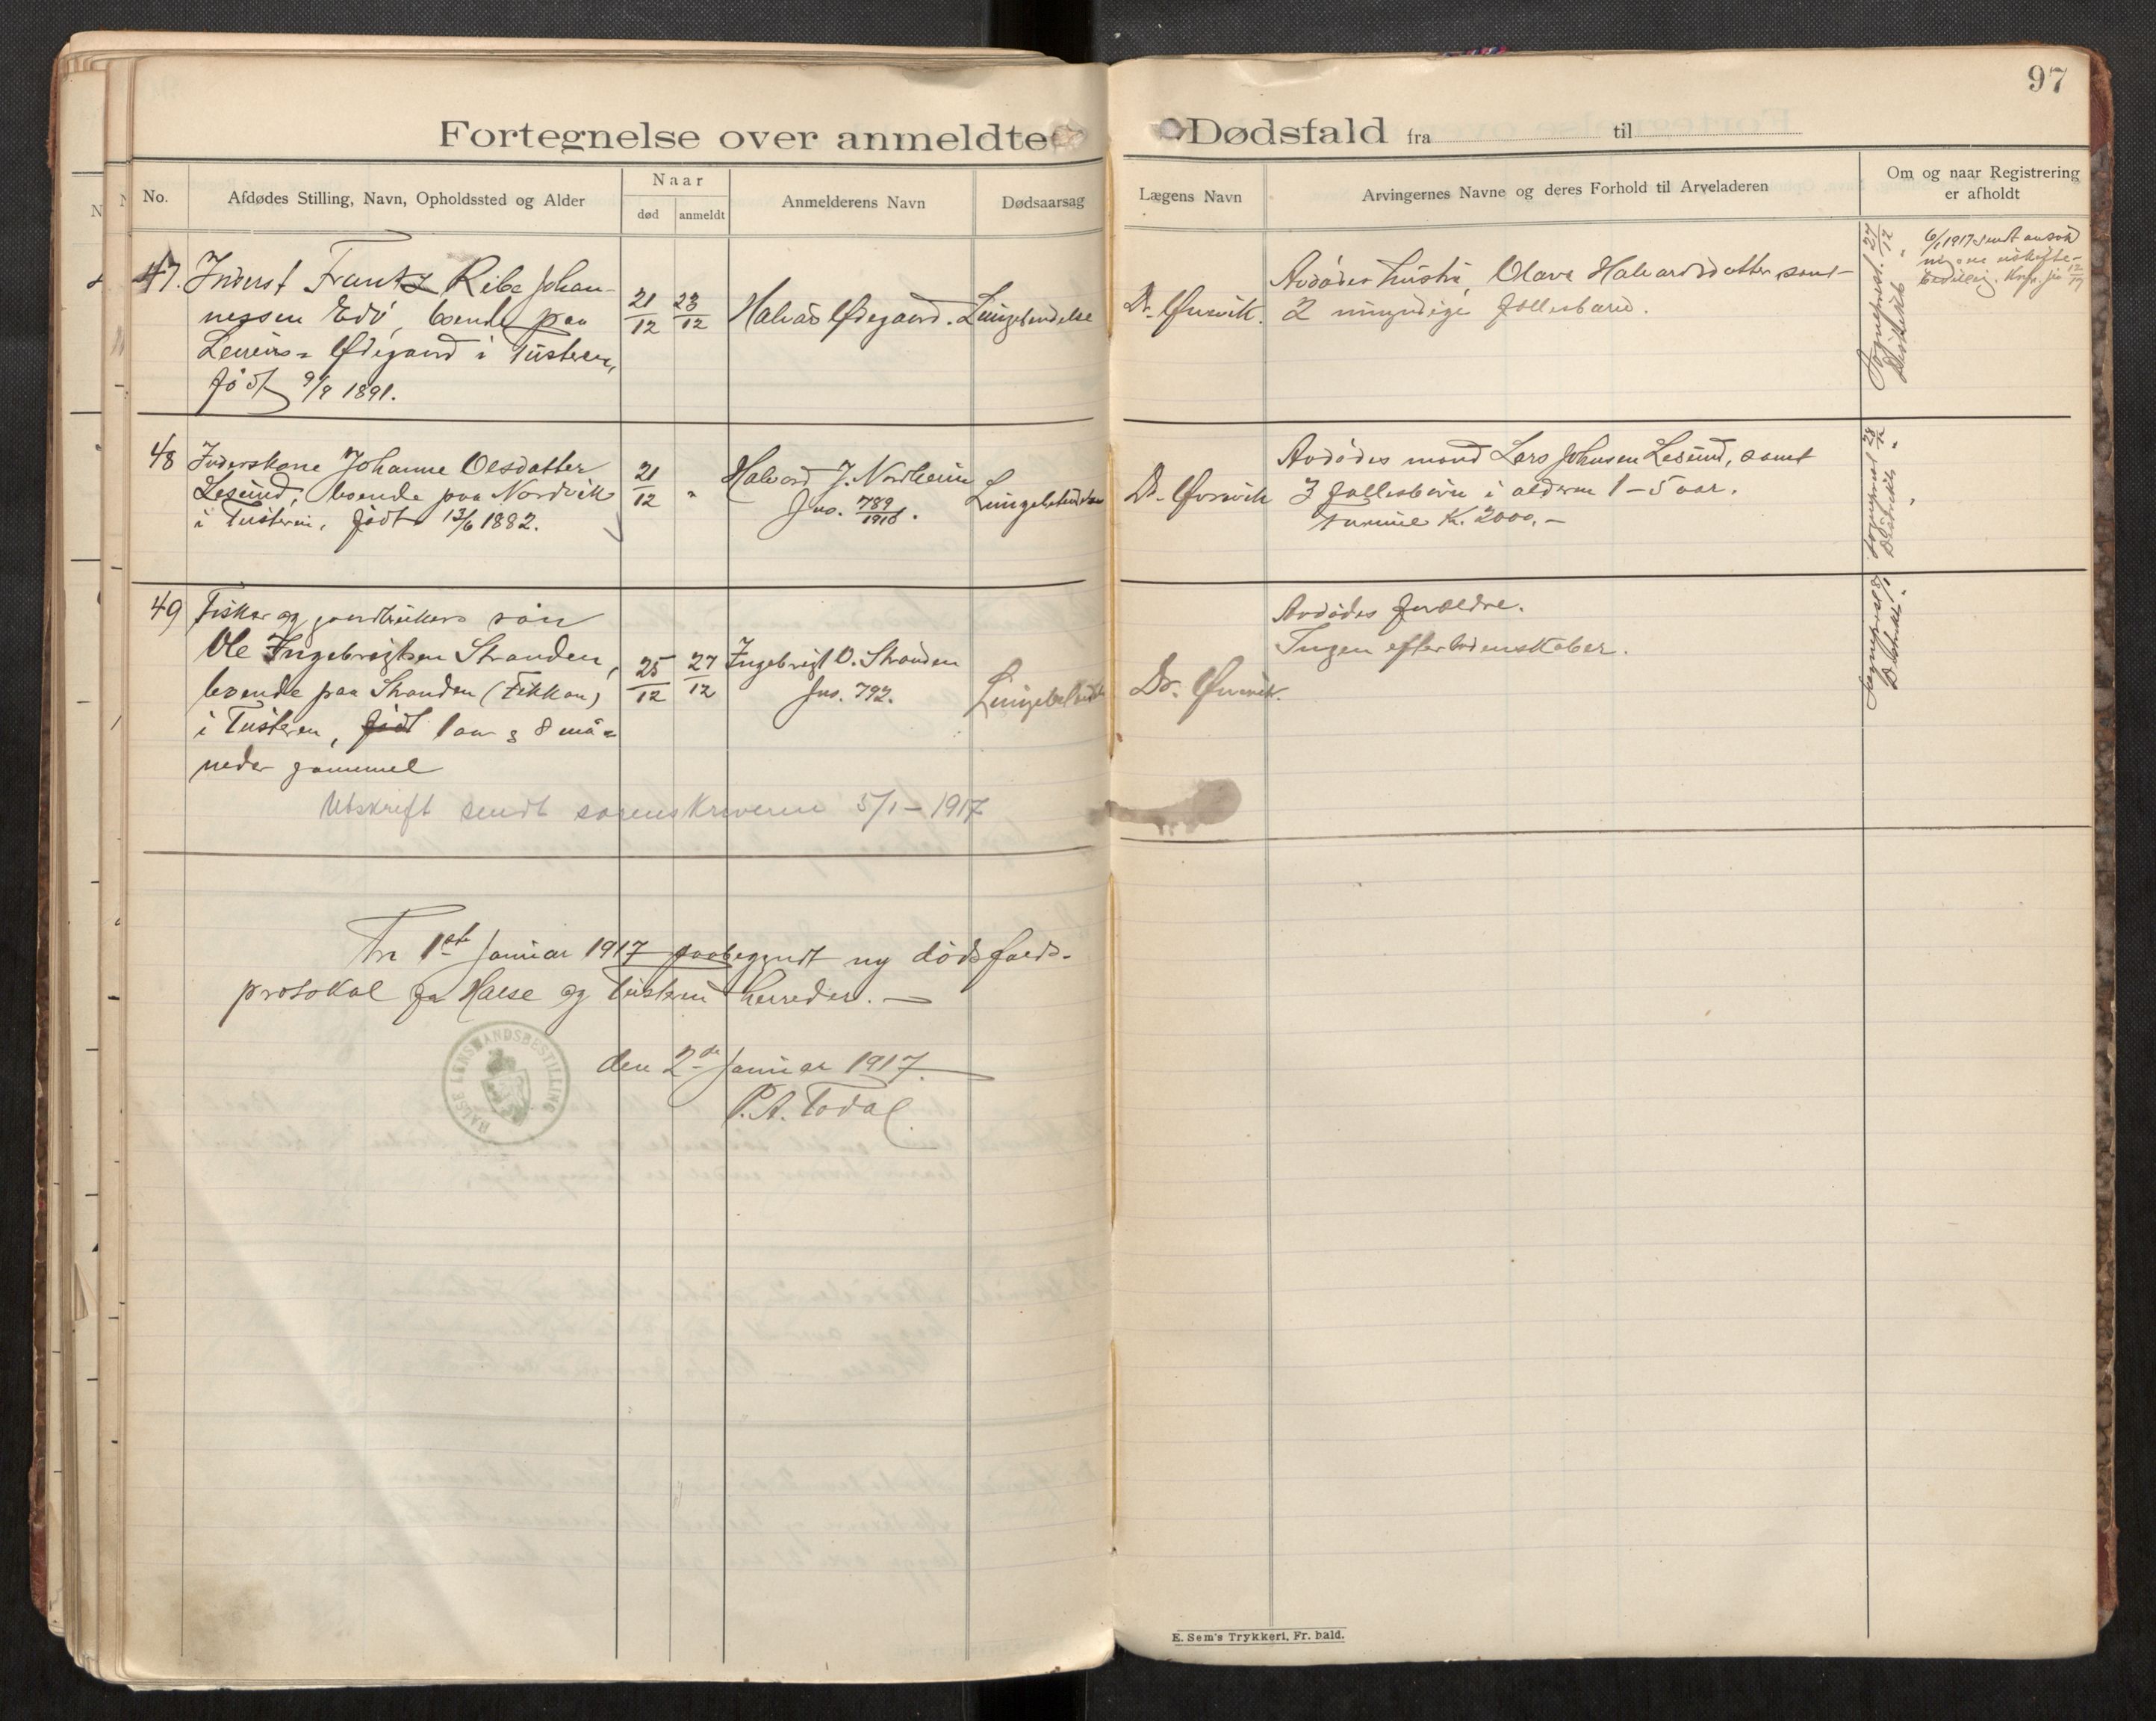 97
Fortegnelse over anmeldte Dødsfald fra til
No.
Afdødes Stilling, Navn, Opholdssted og Alder
Naar
død
anmeldt
Anmelderens Navn
Dødsaarsag
Lægens Navn
Arvingernes Navne og deres Forhold til Arveladeren
Om og naar Registrering
er afholdt
47. Inderst Frantz Ribe Johan-
nessen Edö, boende paa
Ødegaard i Tusteren,
født 9/9 1891.
21/12
23/12
Halvås Ødegaard.
Lungebetendelse
Dr. Øvrevik.
Avdødes hustru, Olava Halvardsdatter samt
2 umyndige fællesbarn.
Sogneprest. 27/12
Distriktsl. "
6/1 1917 sendt ansøk
ning om uskifte-
bevilling.
48 Inderskone Johanne Olsdatter
Lesund, boende paa Nordvik
i Tusteren, født 13/6 1882.
21/12
"
Halvard J. Nordheim
Jno. 789/1916.
Lungebetendelse
Dr. Øvrevik
Avdødes mand Lars Johnsen Lesund, samt
3 fællesbørn i alderen 1-5 aar.
Formue K. 2000.-
Sogneprest 28/12
Distriktsl. "
49 Fisker og gaardbrukers søn
Ole Ingebrigtsen Stranden,
boende paa Stranden (Fikkan)
i Tusteren, født 1 aar og 8 må-
neder gammel
25/12
27/12
Ingebrigt O. Stranden
Jno. 792.
Lungebetendelse
Dr. Øvrevik.
Avdødes forældre.
Ingen efterladenskaber.
Sogneprest 8/1
Distriktsl. "
Utskrift sendt sorenskriveren 5/1-1917
Fra 1ste Januar 1917 paabegyndt ny dødsfalds-
protokol for Halse og Tusteren herreder.—
den 2de Januar 1917.
P. A. Todal
HALSE LENSMANDSBESTILLING
E. Sem's Trykkeri, Fr.hald.